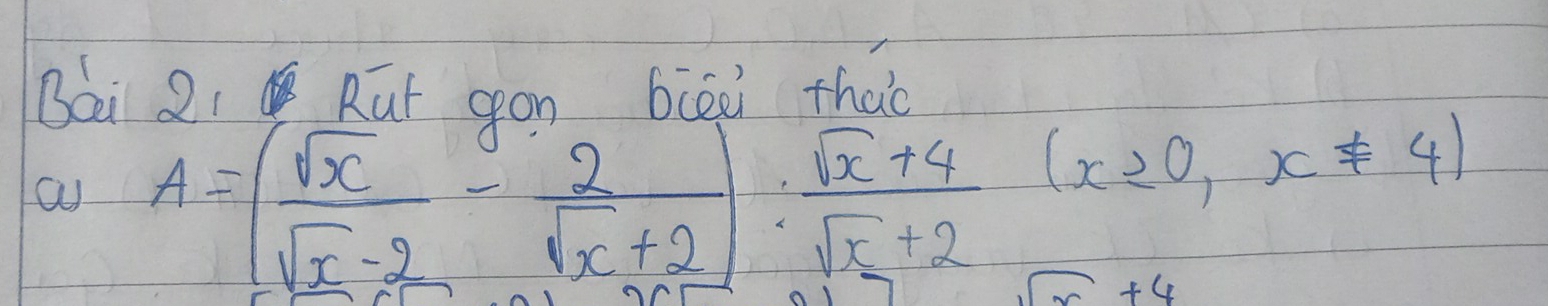 Bài 2, Rút gọn biểu thức
a) A = (√x / (√x - 2) - 2 / (√x + 2)) : (√x + 4) / (√x + 2) (x ≥ 0, x ≠ 4)
√x + 4